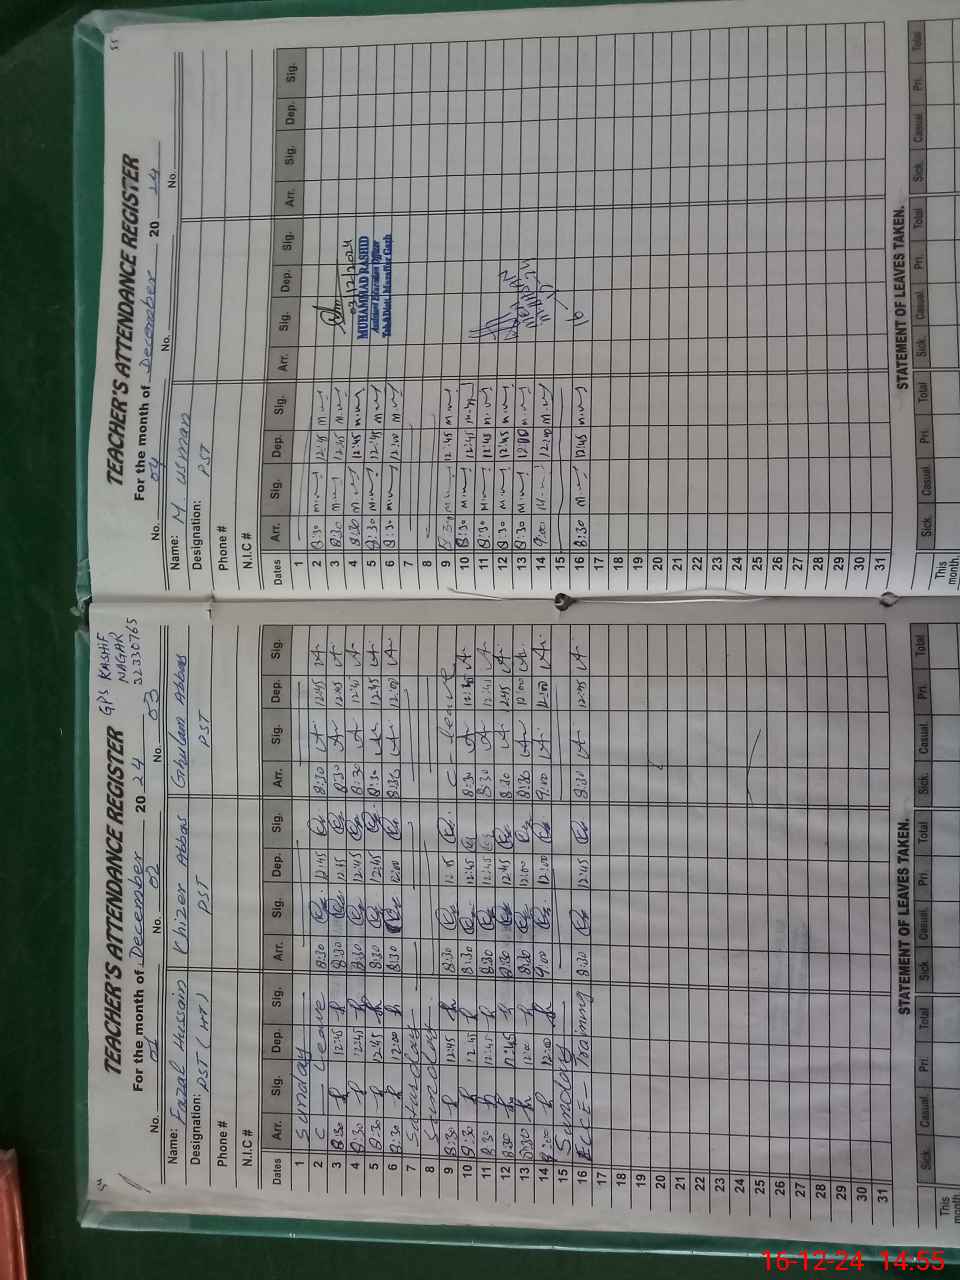 GPS KASHIF
NAGAR
32330765
TEACHER'S ATTENDANCE REGISTER
For the month of December 2024
No. 01 No. 02 No. 03
Name: Fazal Hussain Khizer Abbas Ghulam Abbas
Designation: PST (HT) PST PST
Phone #
N.I.C #
Dates Arr. Sig. Dep. Sig. Arr. Sig. Dep. Sig. Arr. Sig. Dep. Sig.
1 Sunday
2 C - Leave 8:30 12:45 8:30 12:45
3 8:30 12:45 8:30 12:45 8:30 12:45
4 8:30 12:45 8:30 12:45 8:30 12:45
5 8:30 12:45 8:30 12:45 8:30 12:45
6 8:30 12:00 8:30 12:00 8:30 12:00
7 Saturday
8 Sunday
9 8:30 12:45 8:30 12:45 C - Leave
10 8:30 12:45 8:30 12:45 8:30 12:45
11 8:30 12:45 8:30 12:45 8:30 12:45
12 8:30 12:45 8:30 12:45 8:30 12:45
13 8:30 12:00 8:30 12:00 8:30 12:00
14 9:00 12:00 9:00 12:00 9:00 12:00
15 Sunday
16 ECCE - Training 8:30 12:45 8:30 12:45
17
18
19
20
21
22
23
24
25
26
27
28
29
30
31
STATEMENT OF LEAVES TAKEN.
Sick. Casual. Pri. Total Sick Casual. Pri. Total Sick. Casual. Pri. Total
This
month
TEACHER'S ATTENDANCE REGISTER
For the month of December 2024
No. 04 No. No.
Name: M. Usman
Designation: PST
Phone #
N.I.C #
Dates Arr. Sig. Dep. Sig. Arr. Sig. Dep. Sig. Arr. Sig. Dep. Sig.
1
2 8:30 12:45
3 8:30 12:45
4 8:30 12:45
5 8:30 12:45
6 8:30 12:00
7
8
9 8:30 12:45
10 8:30 12:45
11 8:30 12:45
12 8:30 12:45
13 8:30 12:00
14 9:00 12:00
15
16 8:30 12:45
17
18
19
20
21
22
23
24
25
26
27
28
29
30
31
03/12/2024
MUHAMMAD RASHID
Assistant Education Officer
STATEMENT OF LEAVES TAKEN.
Sick. Casual Pri. Total Sick. Casual. Pri. Total Sick. Casual Pri. Total
This
month
16-12-24 14:55